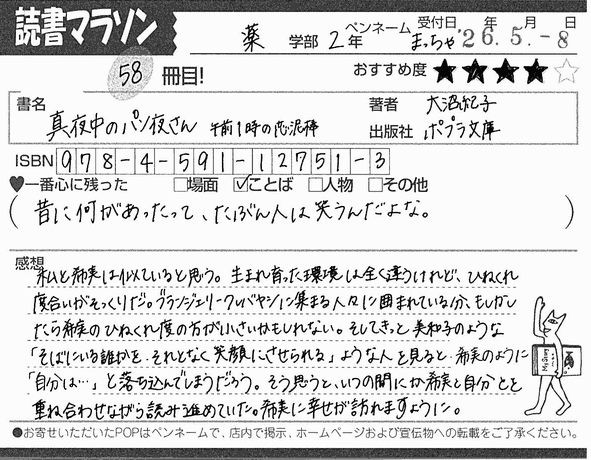 読書マラソン
薬 学部 2年 ペンネーム まっちゃ 受付日 '26.5.-8 年 月 日
58 冊目! おすすめ度 ★★★★☆
書名 真夜中のパン夜さん 午前1時の恋泥棒
著者 大沼紀子
出版社 ポプラ文庫
ISBN 978-4-591-12751-3
♥一番心に残った □場面 ☑ことば □人物 □その他
(昔に何があったって、たぶん人は笑うんだよな。)
感想
私と希実は似ていると思う。生まれ育った環境は全く違うけれど、ひねくれ
度合いがそっくりだ。ブランジェリークレバヤシに集まる人々に囲まれている分、もしかし
たら希実のひねくれ度の方が小さいかもしれない。そしてきっと美和子のような
「そばにいる誰かを、それとなく笑顔にさせられる」ような人を見ると、希実のように
「自分は…」と落ち込んでしまうだろう。そう思うと、いつの間にか希実と自分とを
重ね合わせながら読み進めていた。希実に幸せが訪れますように。
●お寄せいただいたPOPはペンネームで、店内で掲示、ホームページおよび宣伝物への転載をご了承ください。